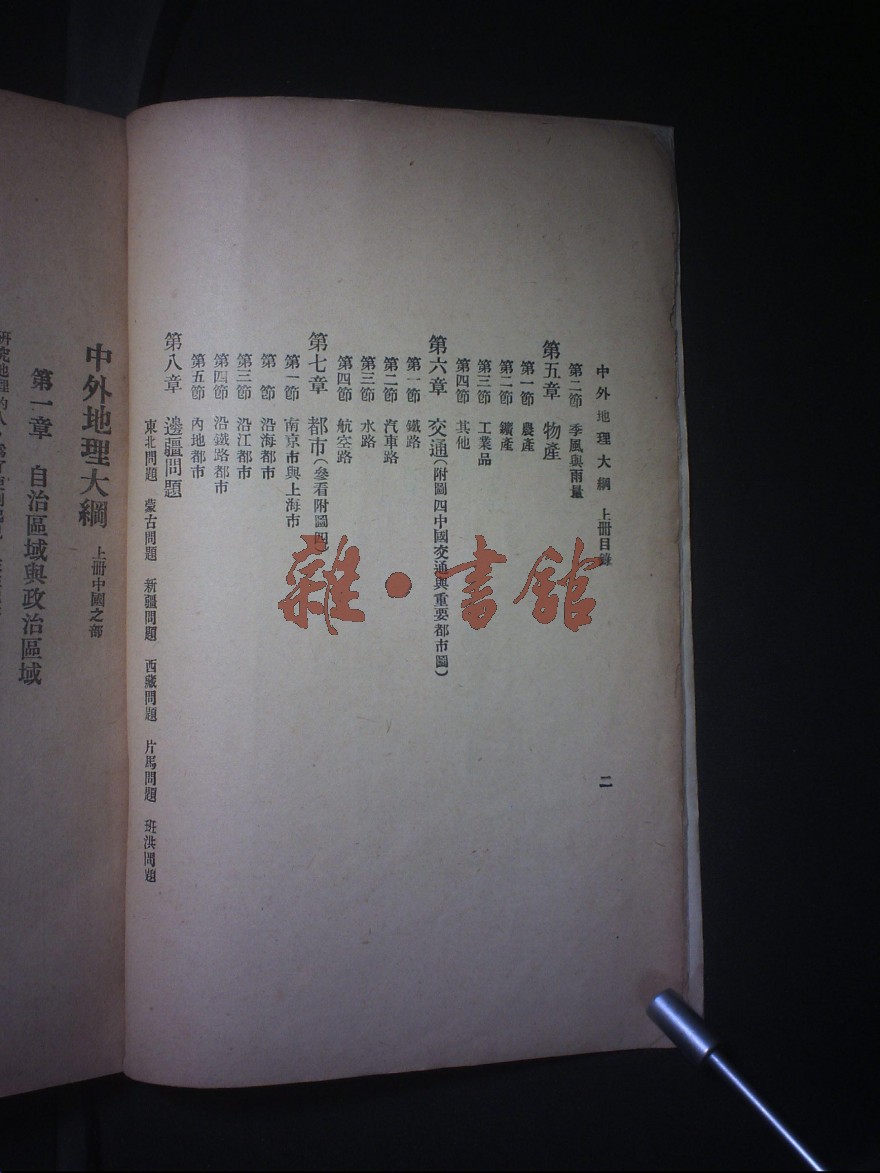 中外地理大綱 上冊目錄
二
第二節 季風與雨量
第五章 物產
第一節 農產
第二節 鑛產
第三節 工業品
第四節 其他
第六章 交通(附圖四中國交通與重要都市圖)
第一節 鐵路
第二節 汽車路
第三節 水路
第四節 航空路
第七章 都市(參看附圖四)
第一節 南京市與上海市
第 節 沿海都市
第三節 沿江都市
第四節 沿鐵路都市
第五節 內地都市
第八章 邊疆問題
東北問題 蒙古問題 新疆問題 西藏問題 片馬問題 班洪問題
中外地理大綱 上冊中國之部
第一章 自治區域與政治區域
研究地理的人
雜·書館